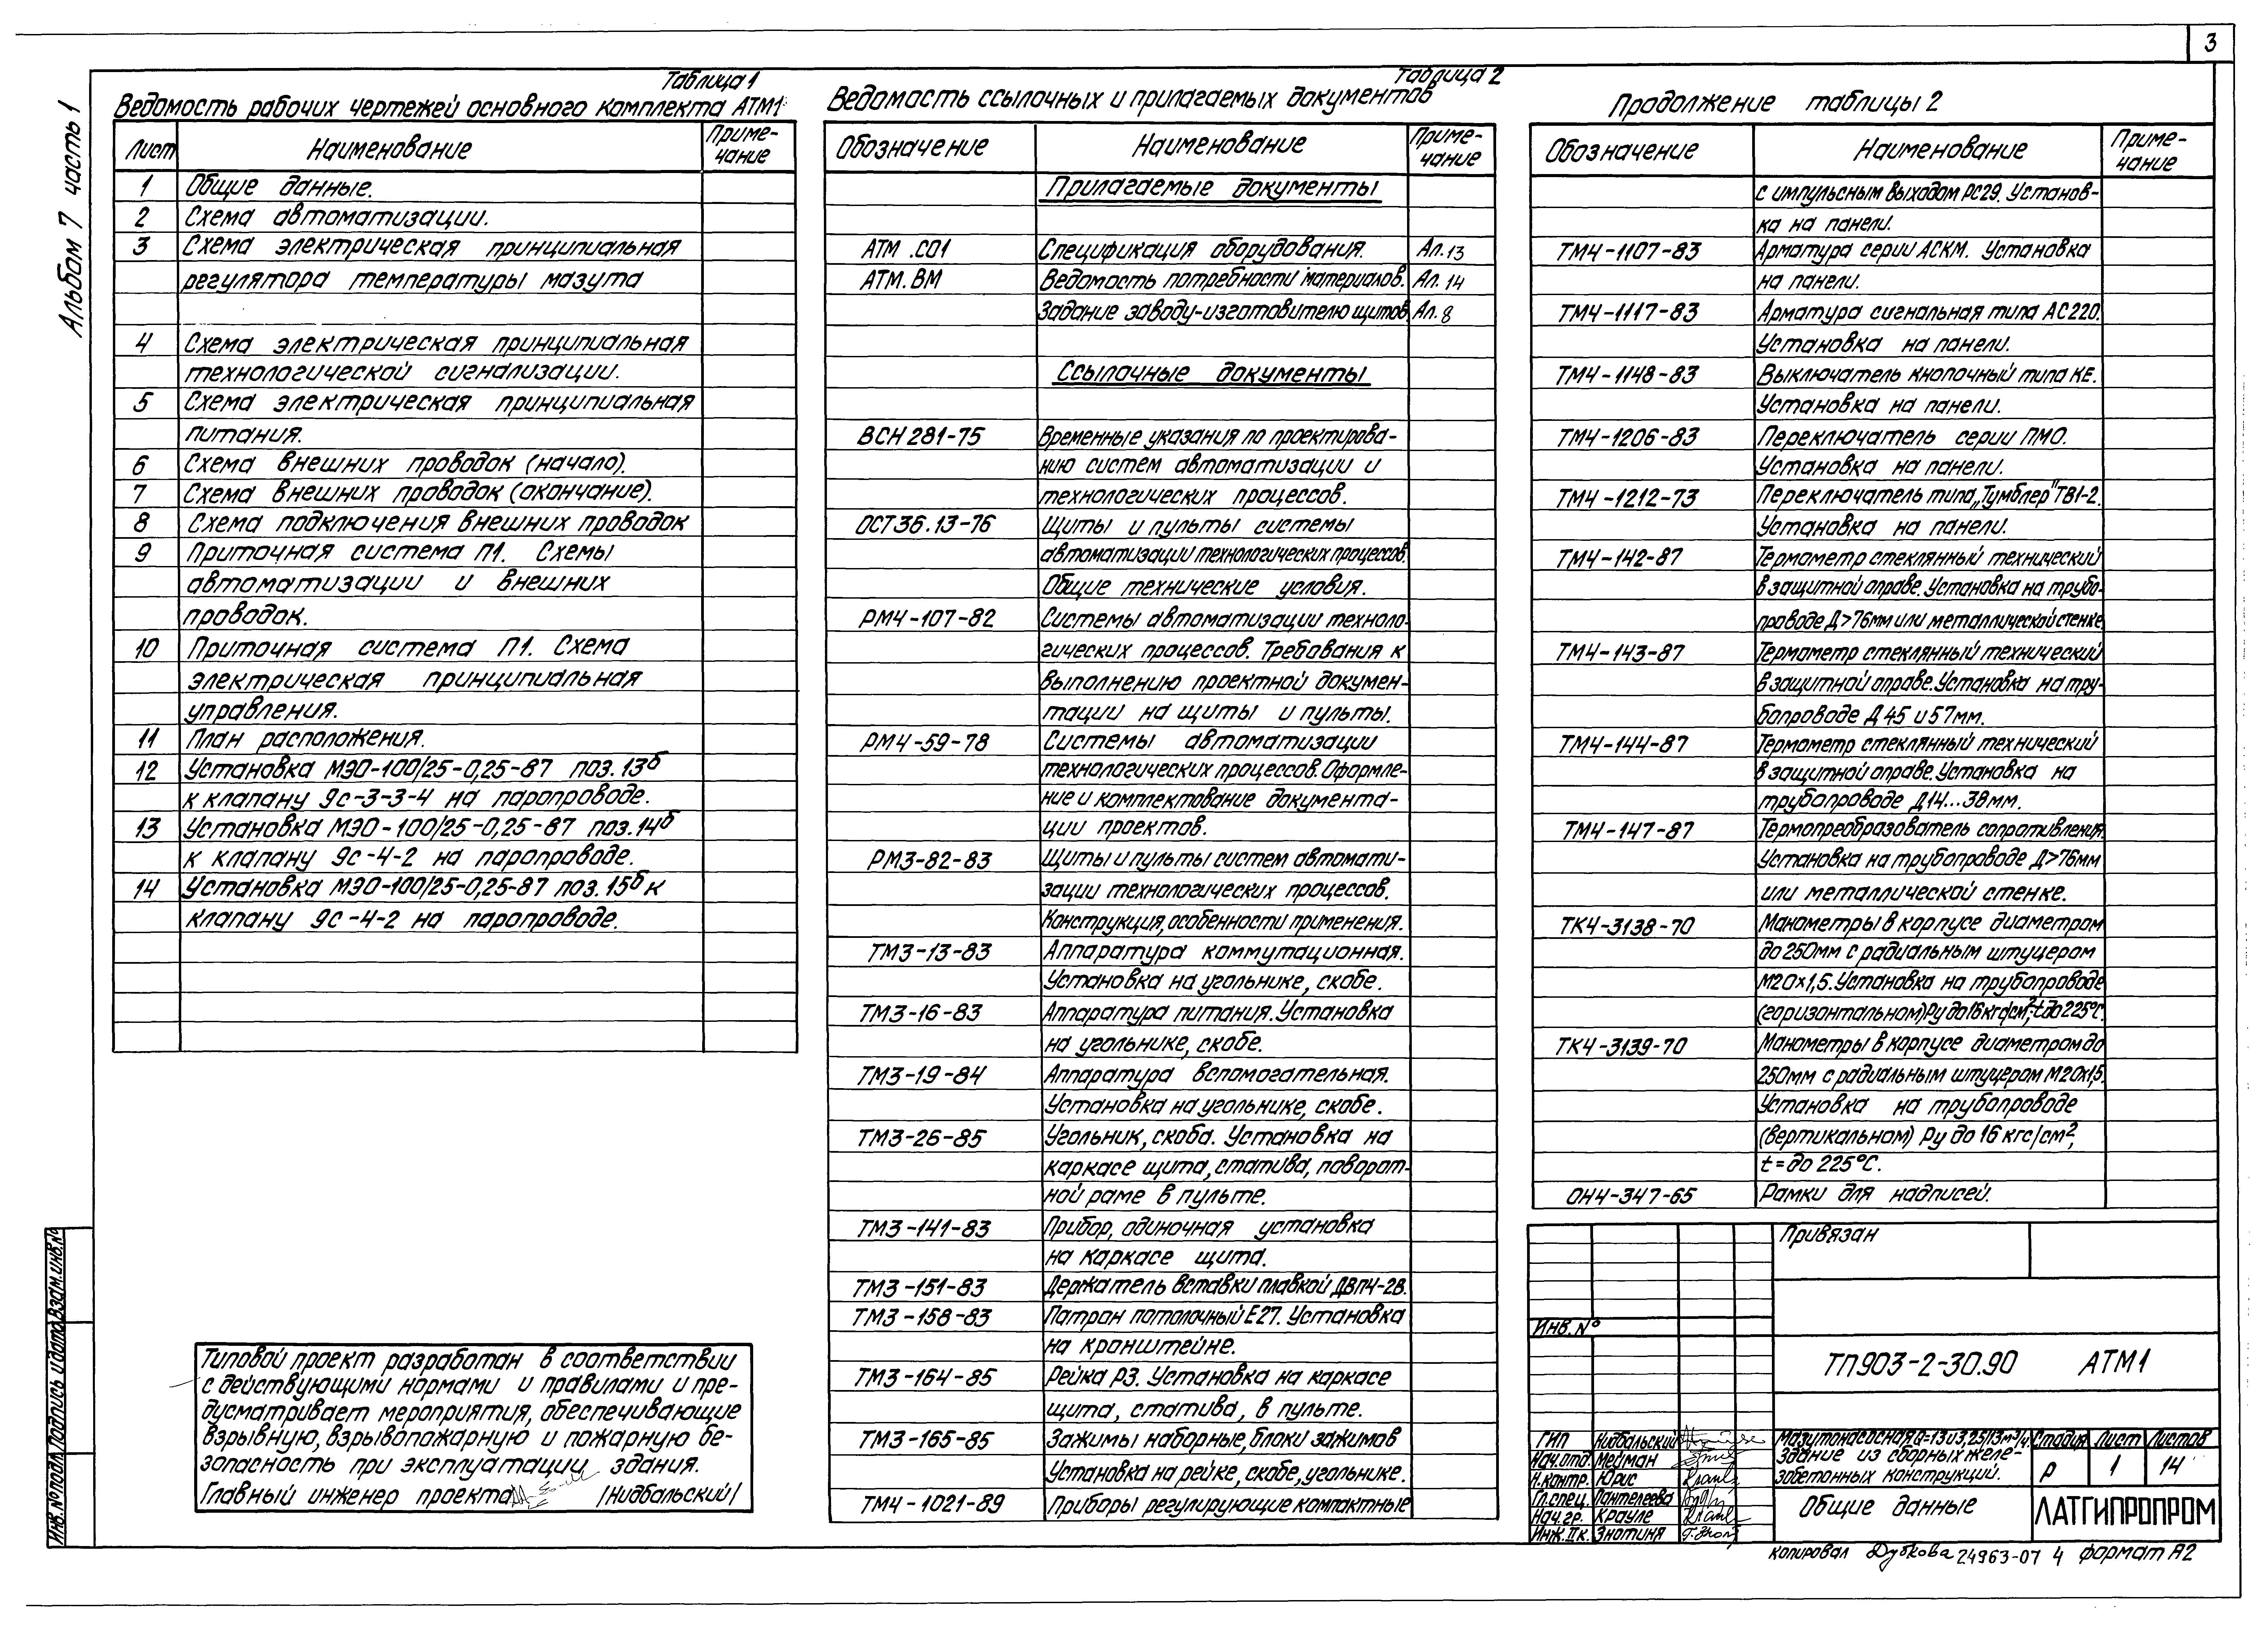 3
Альбом 7 часть 1
Таблица 1
Ведомость рабочих чертежей основного комплекта АТМ1
Лист Наименование Приме-
чание
1 Общие данные.
2 Схема автоматизации.
3 Схема электрическая принципиальная
регулятора температуры мазута
4 Схема электрическая принципиальная
технологической сигнализации.
5 Схема электрическая принципиальная
питания.
6 Схема внешних проводок (начало).
7 Схема внешних проводок (окончание).
8 Схема подключения внешних проводок
9 Приточная система П1. Схемы
автоматизации и внешних
проводок.
10 Приточная система П1. Схема
электрическая принципиальная
управления.
11 План расположения.
12 Установка МЭО-100/25-0,25-87 поз. 13б
к клапану 9с-3-3-4 на паропроводе.
13 Установка МЭО-100/25-0,25-87 поз. 14б
к клапану 9с-4-2 на паропроводе.
14 Установка МЭО-100/25-0,25-87 поз. 15б к
клапану 9с-4-2 на паропроводе.
Таблица 2
Ведомость ссылочных и прилагаемых документов
Обозначение Наименование Приме-
чание
Прилагаемые документы
АТМ .СО1 Спецификация оборудования. Ал. 13
АТМ. ВМ Ведомость потребности материалов. Ал. 14
Задание заводу-изготовителю щитов Ал. 8
Ссылочные документы
ВСН 281-75 Временные указания по проектирова-
нию систем автоматизации и
технологических процессов.
ОСТ 36.13-76 Щиты и пульты системы
автоматизации технологических процессов.
Общие технические условия.
РМ4-107-82 Системы автоматизации техноло-
гических процессов. Требования к
выполнению проектной докумен-
тации на щиты и пульты.
РМ4-59-78 Системы автоматизации
технологических процессов. Оформле-
ние и комплектование документа-
ции проектов.
РМ3-82-83 Щиты и пульты систем автомати-
зации технологических процессов.
Конструкция, особенности применения.
ТМ3-13-83 Аппаратура коммутационная.
Установка на угольнике, скобе.
ТМ3-16-83 Аппаратура питания. Установка
на угольнике, скобе.
ТМ3-19-84 Аппаратура вспомогательная.
Установка на угольнике, скобе.
ТМ3-26-85 Угольник, скоба. Установка на
каркасе щита, статива, поворот-
ной раме в пульте.
ТМ3-141-83 Прибор, одиночная установка
на каркасе щита.
ТМ3-151-83 Держатель вставки плавкой ДВП4-2В.
ТМ3-158-83 Патрон потолочный Е27. Установка
на кронштейне.
ТМ3-164-85 Рейка Р3. Установка на каркасе
щита, статива, в пульте.
ТМ3-165-85 Зажимы наборные, блоки зажимов
Установка на рейке, скобе, угольнике.
ТМ4-1021-89 Приборы регулирующие компактные
Продолжение таблицы 2
Обозначение Наименование Приме-
чание
с импульсным выходом РС29. Установ-
ка на панели.
ТМ4-1107-83 Арматура серии АСКМ. Установка
на панели.
ТМ4-1117-83 Арматура сигнальная типа АС220.
Установка на панели.
ТМ4-1148-83 Выключатель кнопочный типа КЕ.
Установка на панели.
ТМ4-1206-83 Переключатель серии ПМО.
Установка на панели.
ТМ4-1212-73 Переключатель типа „Тумблер" ТВ1-2.
Установка на панели.
ТМ4-142-87 Термометр стеклянный технический
в защитной оправе. Установка на трубо-
проводе Д>76мм или металлической стенке
ТМ4-143-87 Термометр стеклянный технический
в защитной оправе. Установка на тру-
бопроводе Д 45 и 57мм.
ТМ4-144-87 Термометр стеклянный технический
в защитной оправе. Установка на
трубопроводе Д14...38мм.
ТМ4-147-87 Термопреобразователь сопротивления.
Установка на трубопроводе Д>76мм
или металлической стенке.
ТК4-3138-70 Манометры в корпусе диаметром
до 250мм с радиальным штуцером
М20×1,5. Установка на трубопроводе
(горизонтальном) Ру до 16 кгс/см², t до 225°С.
ТК4-3139-70 Манометры в корпусе диаметром до
250мм с радиальным штуцером М20×1,5.
Установка на трубопроводе
(вертикальном) Ру до 16 кгс/см²,
t = до 225°С.
ОН4-347-65 Рамки для надписей.
Типовой проект разработан в соответствии
с действующими нормами и правилами и пре-
дусматривает мероприятия, обеспечивающие
взрывную, взрывопожарную и пожарную бе-
зопасность при эксплуатации здания.
Главный инженер проекта /Нидбальский/
Инв. № подл. Подпись и дата Взам. инв. №
Привязан
Инв. №
ТП 903-2-30.90 АТМ1
ГИП Нидбальский
Нач. отд Мейман
Н. контр. Юрис
Гл. спец. Пантелеева
Нач. гр. Крауле
Инж. II к. Знотиня
Мазутонасосная Q=13 и 3,25/13 м³/ч.
Здание из сборных желе-
зобетонных конструкций.
Стадия Лист Листов
Р 1 14
Общие данные
ЛАТГИПРОПРОМ
Копировал Дубкова 24963-07 4 формат А2